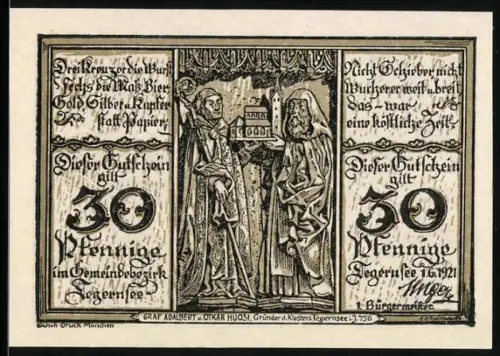 Drei Kreuzer die Wurst
Sechs die Maß Bier
Gold, Silber u. Kupfer
statt Papier.
Dieser Gutschein
gilt
30
Pfennige
im Gemeindebezirk
Tegernsee
Nicht Schieber nicht
Wucherer weit u. breit
das war
eine köstliche Zeit.
Dieser Gutschein
gilt
30
Pfennige
Tegernsee 1.6.1921
1. Bürgermeister
GRAF ADALBERT u. OTKAR HUOSI, Gründer d. Klosters Tegernsee i. J. 756
Druck München